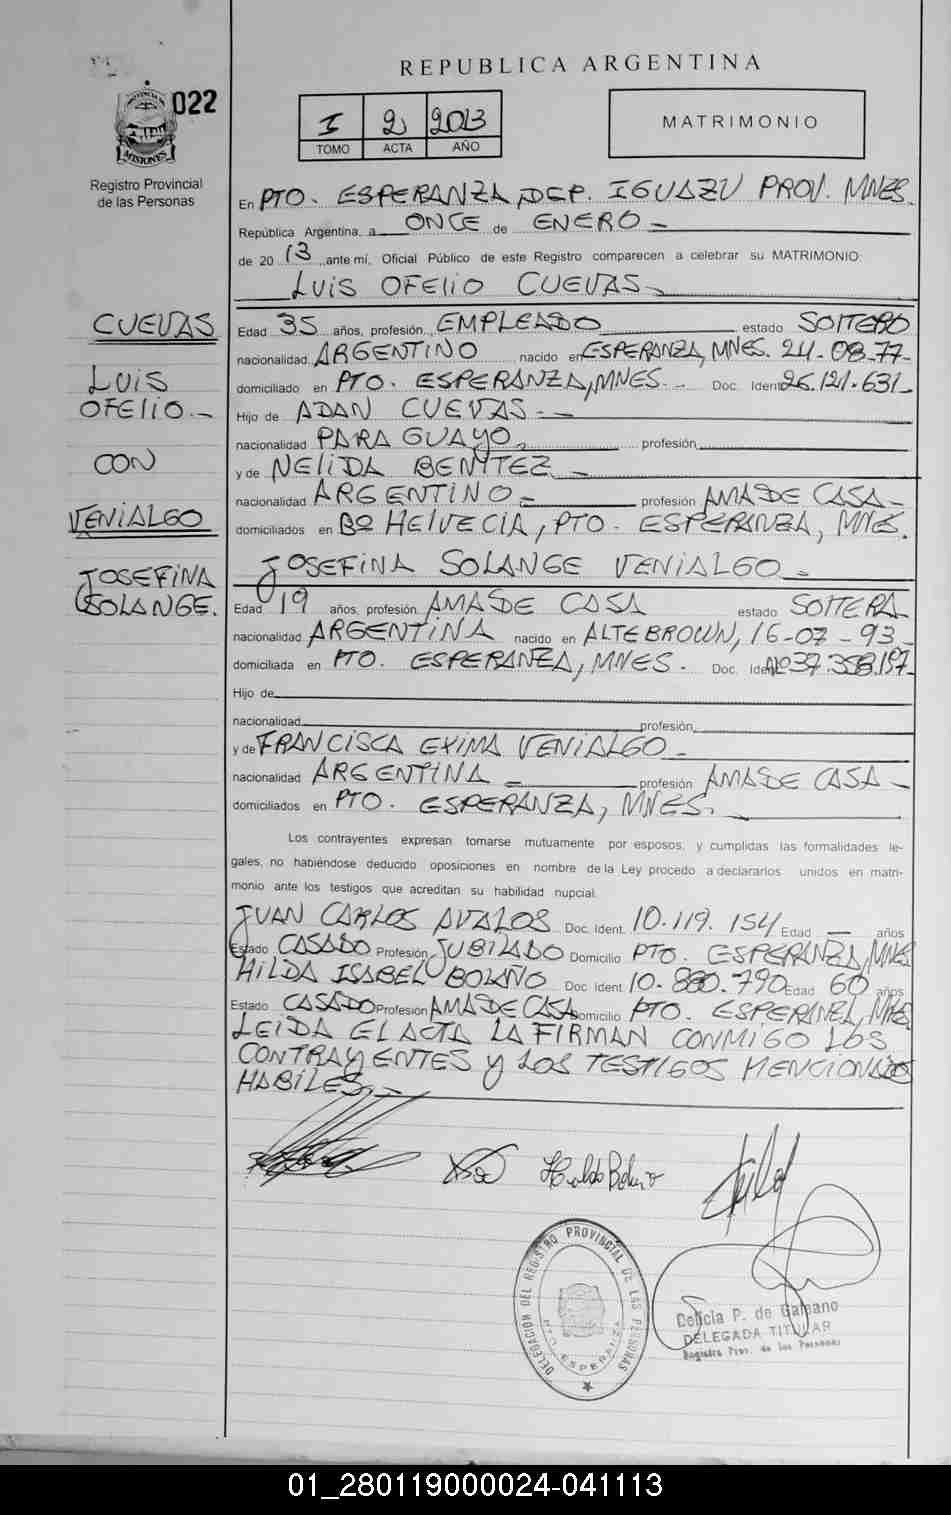 REPUBLICA ARGENTINA
022
I 2 2013
TOMO ACTA AÑO
MATRIMONIO
PROVINCIA DE
MISIONES
Registro Provincial
de las Personas
En PTO. ESPERANZA, DEP. IGUAZU PROV. MNES.
República Argentina, a ONCE de ENERO
de 2013, ante mí, Oficial Público de este Registro comparecen a celebrar su MATRIMONIO:
LUIS OFELIO CUEVAS
CUEVAS
LUIS
OFELIO
CON
VENIALGO
JOSEFINA
SOLANGE.
Edad 35 años, profesión EMPLEADO estado SOLTERO
nacionalidad ARGENTINO nacido en ESPERANZA, MNES. 24-08-77-
domiciliado en PTO. ESPERANZA, MNES. Doc. Ident 26.121.631
Hijo de ADAN CUEVAS
nacionalidad PARAGUAYO, profesión
y de NELIDA BENITEZ
nacionalidad ARGENTINO profesión AMA DE CASA
domiciliados en Bº HELVECIA, PTO. ESPERANZA, MNES.
JOSEFINA SOLANGE VENIALGO
Edad 19 años, profesión AMA DE CASA estado SOLTERA
nacionalidad ARGENTINA nacido en ALTE BROWN, 16-07-93
domiciliada en PTO. ESPERANZA, MNES. Doc. Ident Nº 37.358.197
Hijo de
nacionalidad profesión
y de FRANCISCA EXIMA VENIALGO
nacionalidad ARGENTINA profesión AMA DE CASA
domiciliados en PTO. ESPERANZA, MNES.
Los contrayentes expresan tomarse mutuamente por esposos, y cumplidas las formalidades le-
gales, no habiéndose deducido oposiciones en nombre de la Ley procedo a declararlos unidos en matri-
monio ante los testigos que acreditan su habilidad nupcial.
JUAN CARLOS AVALOS Doc. Ident. 10.119.154 Edad — años
Estado CASADO Profesión JUBILADO Domicilio PTO. ESPERANZA, MNES
HILDA ISABEL BOLAÑO Doc Ident 10.880.790 Edad 60 años
Estado CASADO Profesión AMA DE CASA Domicilio PTO. ESPERANZA, MNES
LEIDA EL ACTA LA FIRMAN CONMIGO LOS
CONTRAYENTES Y LOS TESTIGOS MENCIONADOS
HABILES
DELEGACION DEL REGISTRO PROVINCIAL DE LAS PERSONAS
PTO. ESPERANZA
Delicia P. de Galeano
DELEGADA TITULAR
Registro Prov. de las Personas
01_280119000024-041113